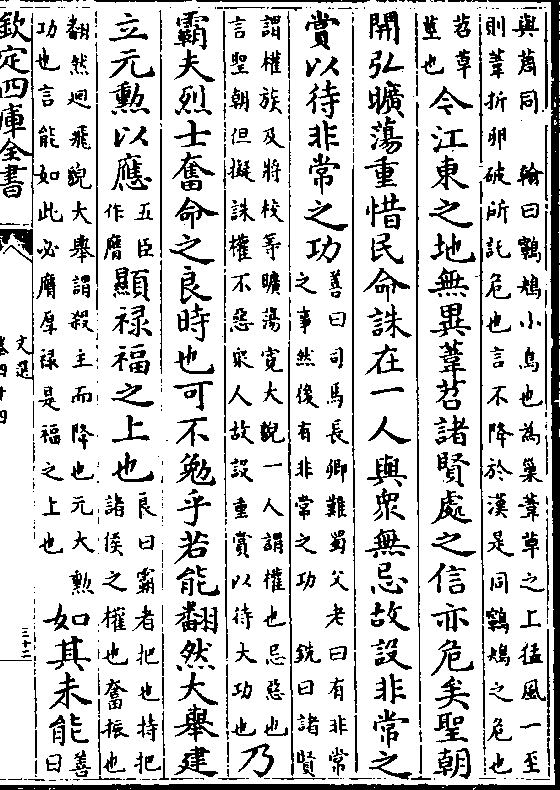 與蔿同　翰曰鷦鳩小鳥也為巢葦草之上猛風一至
則葦折卵破所託危也言不降於漢是同鷦鳩之危也
苕草
華也
今江東之地無異葦苕諸賢處之信亦危矣聖朝
開弘曠蕩重惜民命誅在一人與眾無忌故設非常之
賞以待非常之功
善曰司馬長卿難蜀父老曰有非常
之事然後有非常之功　銑曰諸賢
謂權族及將校等曠蕩寛大貌一人謂權也忌惡也
言聖朝但擬誅權不惡衆人故設重賞以待大功也
乃
霸夫烈士奮命之良時也可不勉乎若能翻然大舉建
立元勲以應
五臣
作膺
顯禄福之上也
良曰霸者把也持把
諸侯之權也奮振也
翻然廻飛貌大舉謂殺主而降也元大勲
功也言能如此必膺厚禄是福之上也
如其未能
善
曰
欽定四庫全書
文選
卷四十四
三十二